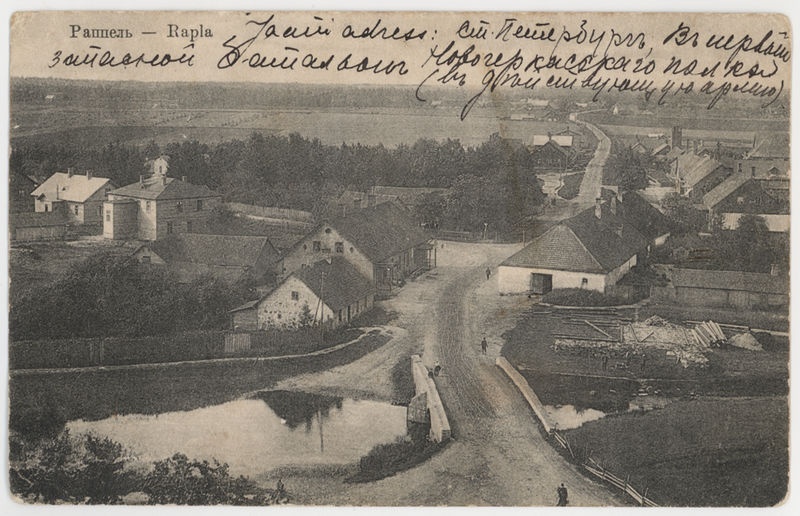 Раппель — Rapla
Jaani adress: Ст. Петербургъ, Въ первый
запасной баталіонъ Новочеркасскаго полка
(въ дѣйствующую армію)